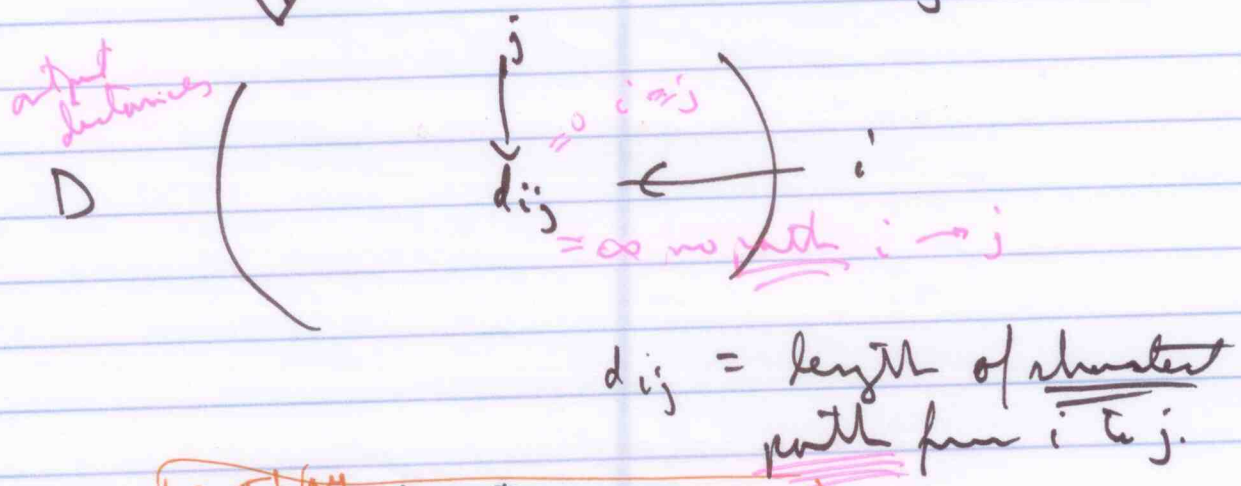 j
output
distances
= 0 i = j
D
d ij
i
= ∞ no path i → j
d ij = length of shortest
path from i to j.